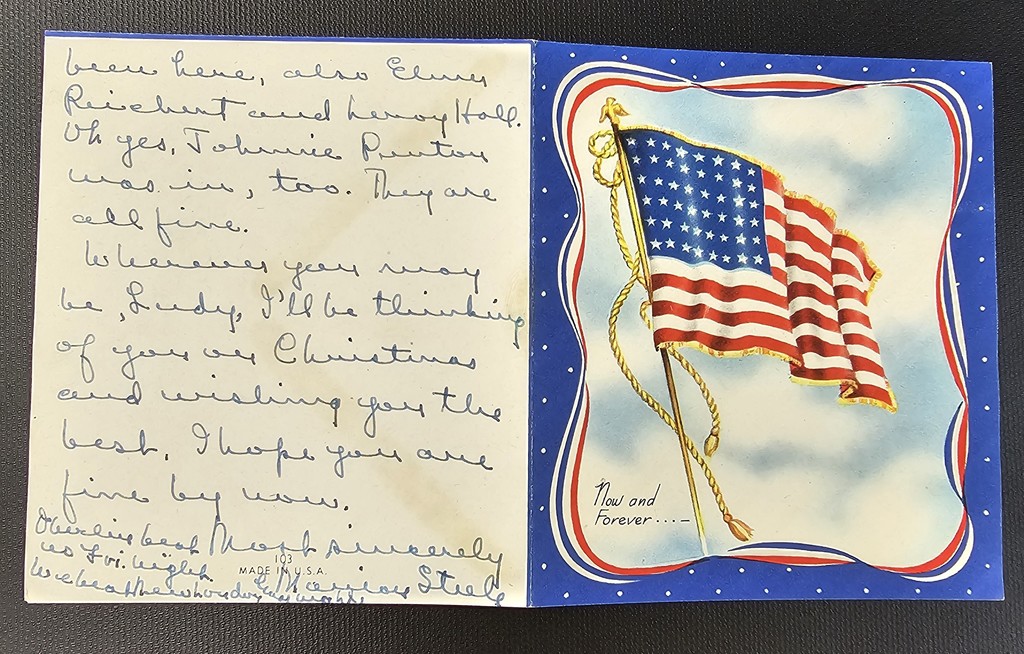 been here, also Elmer
Reichert and Leroy Holl.
Oh yes, Johnnie Pinton
was in, too. They are
all fine.
Wherever you may
be, Ludy, I'll be thinking
of you on Christmas
and wishing you the
best. I hope you are
fine by now.
Most sincerely
Marion Steele
Oberlin beat
us Fri. night.
We beat
night.
103
MADE IN U.S.A.
Now and
Forever . . . –